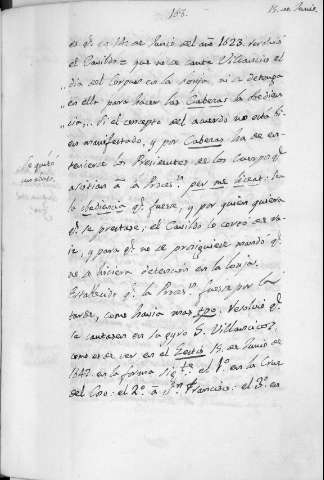 163.
15. de Junio
es q.e en 14 de Junio del año 1623. resolvió
el Cavildo = que no se cante Villancico el
,, dia del Corpus en la lonja, ni se detenga
,, en ella para hacer las Caberas la obedien
,, cia,,. Si el concepto del acuerdo no está bi-
en manifestado, y por Caberas ha de en-
tenderse los Presidentes de los Cuerpos q.e
asistian á la Proces.n per me liceat. Sea
la obediencia q.e fuese, y por quien quiera
q.e se prestase, el Cavildo lo cortó de ra-
iz, y para q.e no se prosiguiese mandó q.e
no se hiciera detencion en la lonja.
Establecido q.e la Proces.n fuera por la
tarde, como havia mas tpo. resolvió q.e
se cantasen en su gyro 5. Villancicos,
como es de ver en el Gestis 15. de Junio de
en la forma sig.te el 1.o en la Cruz
del Coso: el 2.o á S.n Francisco: el 3.o en
Se quitó